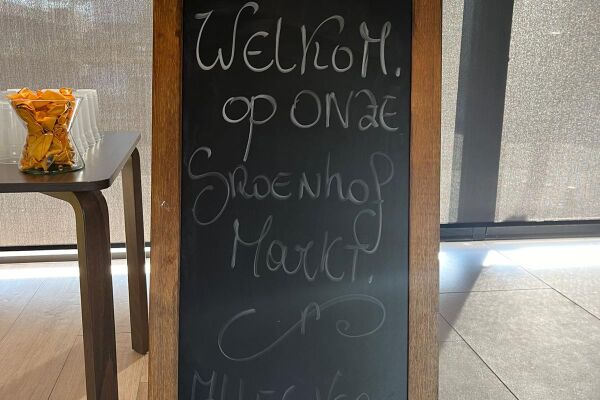 Welkom.
op onze
Groenhof
Markt.